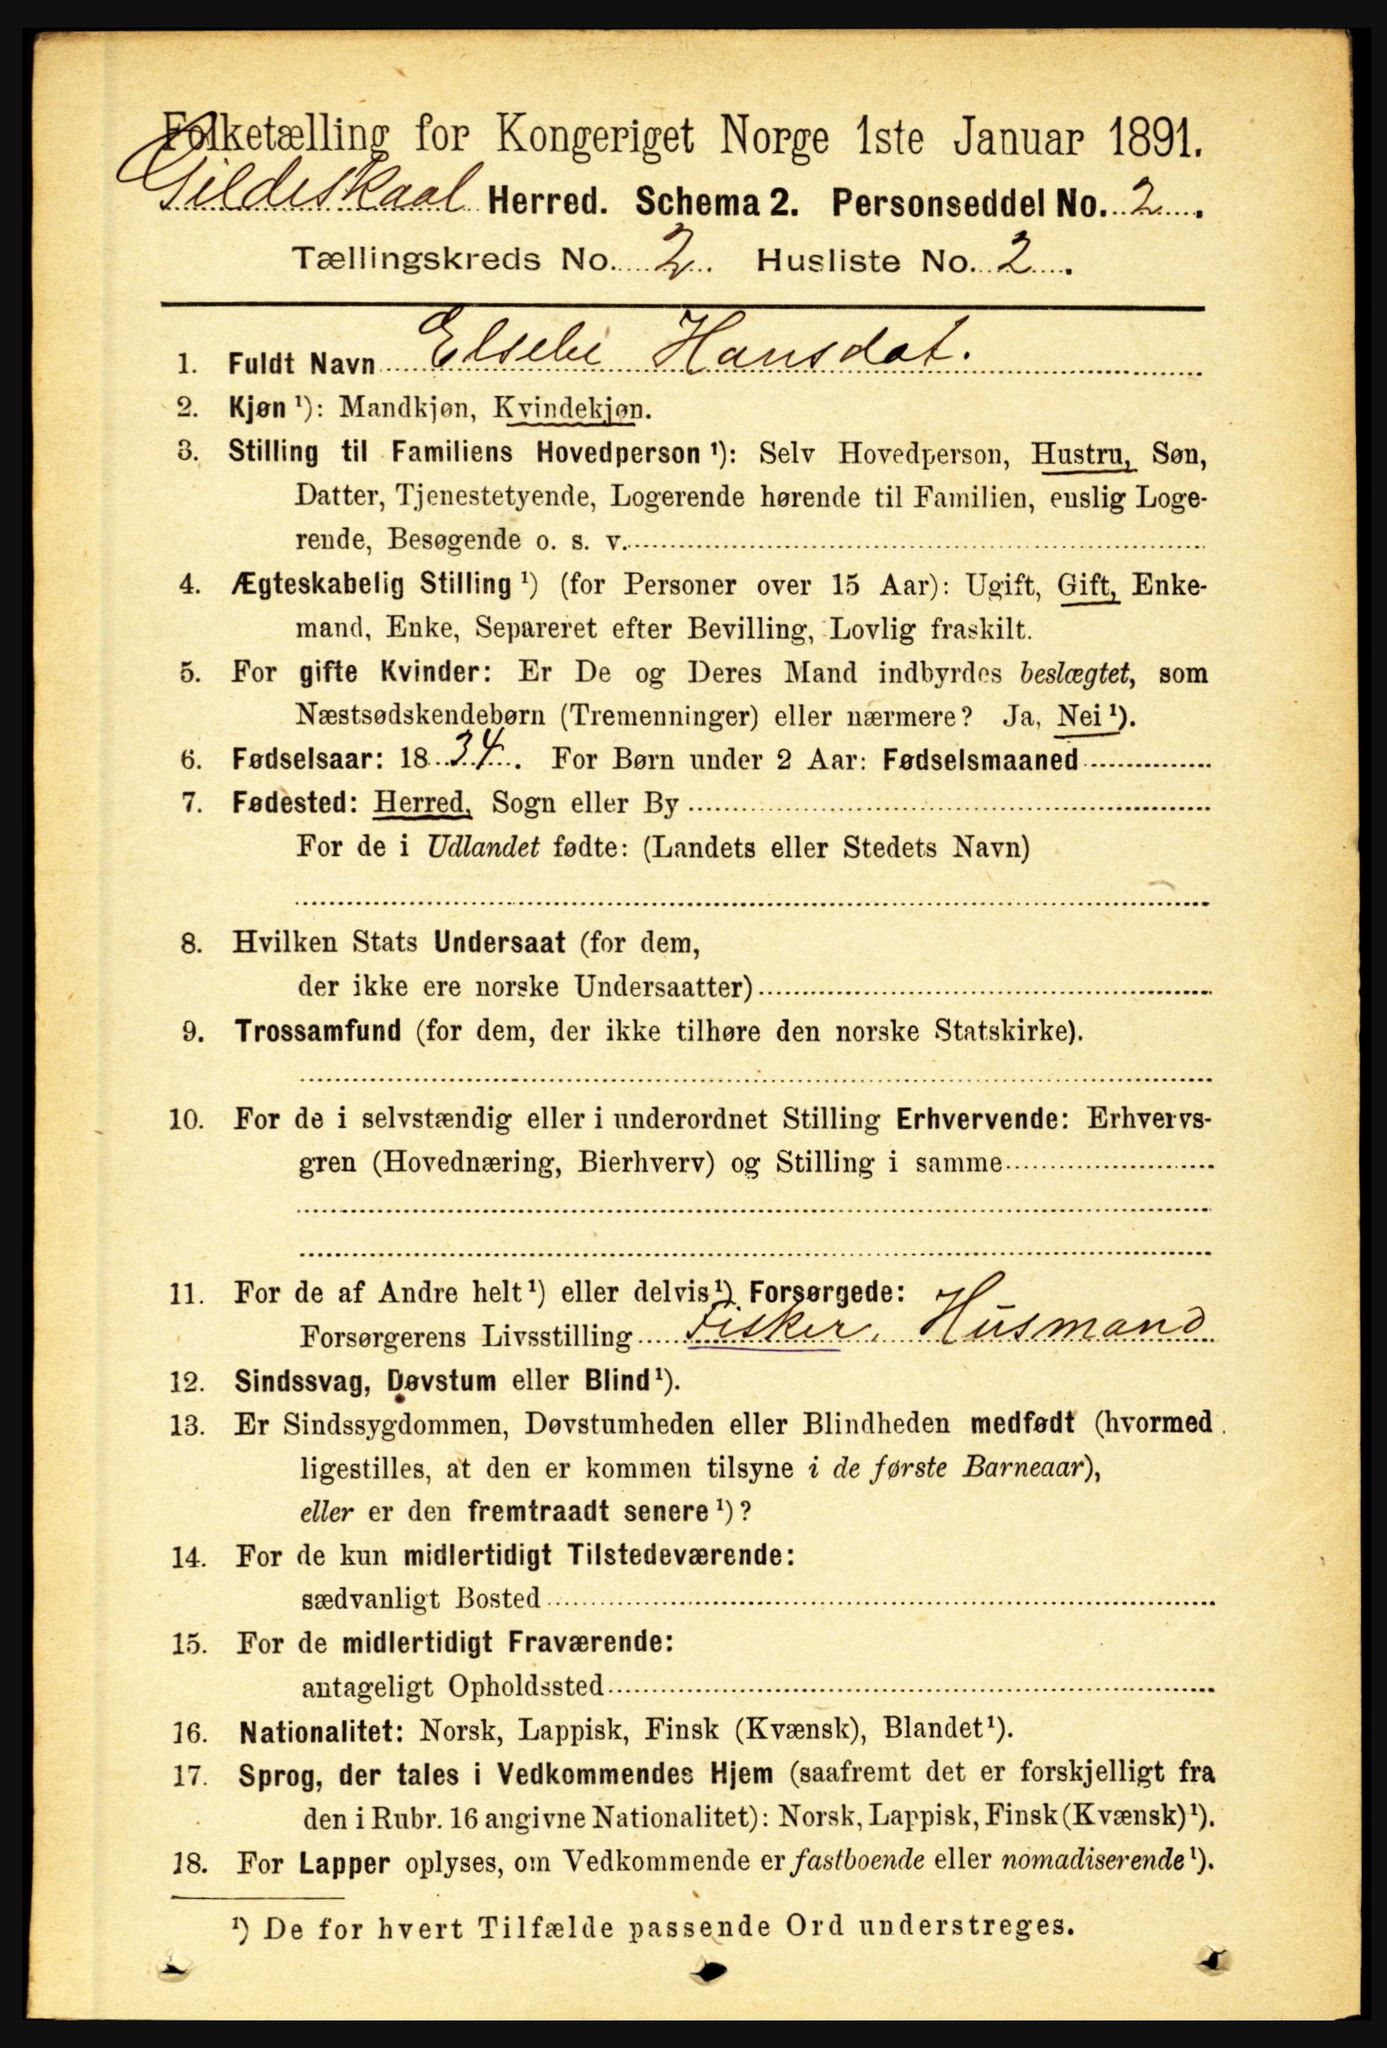 Folketælling for Kongeriget Norge 1ste Januar 1891.
Gildeskaal Herred. Schema 2. Personseddel No. 2.
Tællingskreds No. 2. Husliste No. 2.
1. Fuldt Navn Elsebe Hansdat.
2. Kjøn ¹): Mandkjøn, Kvindekjøn.
3. Stilling til Familiens Hovedperson ¹): Selv Hovedperson, Hustru, Søn,
Datter, Tjenestetyende, Logerende hørende til Familien, enslig Loge-
rende, Besøgende o. s. v.
4. Ægteskabelig Stilling ¹) (for Personer over 15 Aar): Ugift, Gift, Enke-
mand, Enke, Separeret efter Bevilling, Lovlig fraskilt.
5. For gifte Kvinder: Er De og Deres Mand indbyrdes beslægtet, som
Næstsødskendebørn (Tremenninger) eller nærmere? Ja, Nei ¹).
6. Fødselsaar: 1834. For Børn under 2 Aar: Fødselsmaaned
7. Fødested: Herred, Sogn eller By
For de i Udlandet fødte: (Landets eller Stedets Navn)
8. Hvilken Stats Undersaat (for dem,
der ikke ere norske Undersaatter)
9. Trossamfund (for dem, der ikke tilhøre den norske Statskirke).
10. For de i selvstændig eller i underordnet Stilling Erhvervende: Erhvervs-
gren (Hovednæring, Bierhverv) og Stilling i samme
11. For de af Andre helt ¹) eller delvis ¹) Forsørgede:
Forsørgerens Livsstilling Fisker, Husmand
12. Sindssvag, Døvstum eller Blind ¹).
13. Er Sindssygdommen, Døvstumheden eller Blindheden medfødt (hvormed
ligestilles, at den er kommen tilsyne i de første Barneaar),
eller er den fremtraadt senere ¹)?
14. For de kun midlertidigt Tilstedeværende:
sædvanligt Bosted
15. For de midlertidigt Fraværende:
antageligt Opholdssted
16. Nationalitet: Norsk, Lappisk, Finsk (Kvænsk), Blandet ¹).
17. Sprog, der tales i Vedkommendes Hjem (saafremt det er forskjelligt fra
den i Rubr. 16 angivne Nationalitet): Norsk, Lappisk, Finsk (Kvænsk) ¹).
18. For Lapper oplyses, om Vedkommende er fastboende eller nomadiserende ¹).
¹) De for hvert Tilfælde passende Ord understreges.